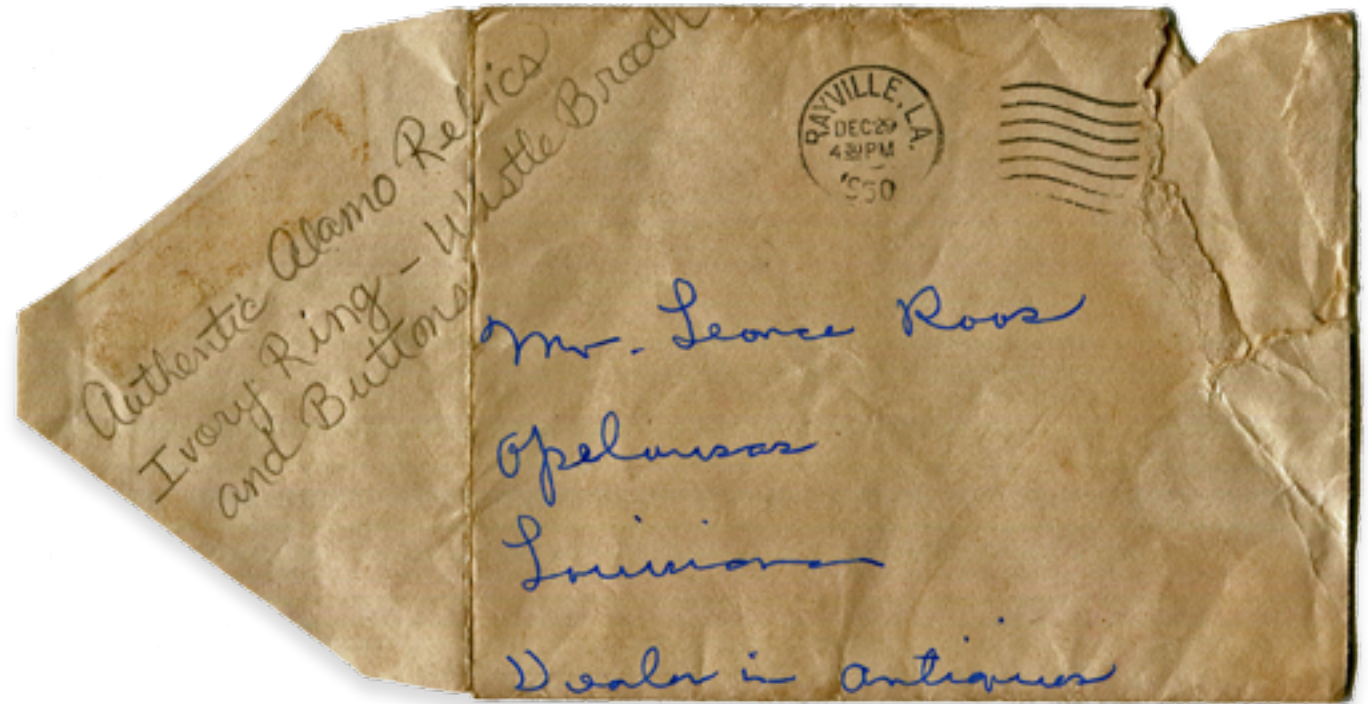 Authentic Alamo Relics
Ivory Ring - Wistle Brooch
and Buttons
RAYVILLE, LA.
DEC 29
4 30 PM
1950
Mr. Leonce Roos
Opelousas
Louisiana
Dealer in Antiques